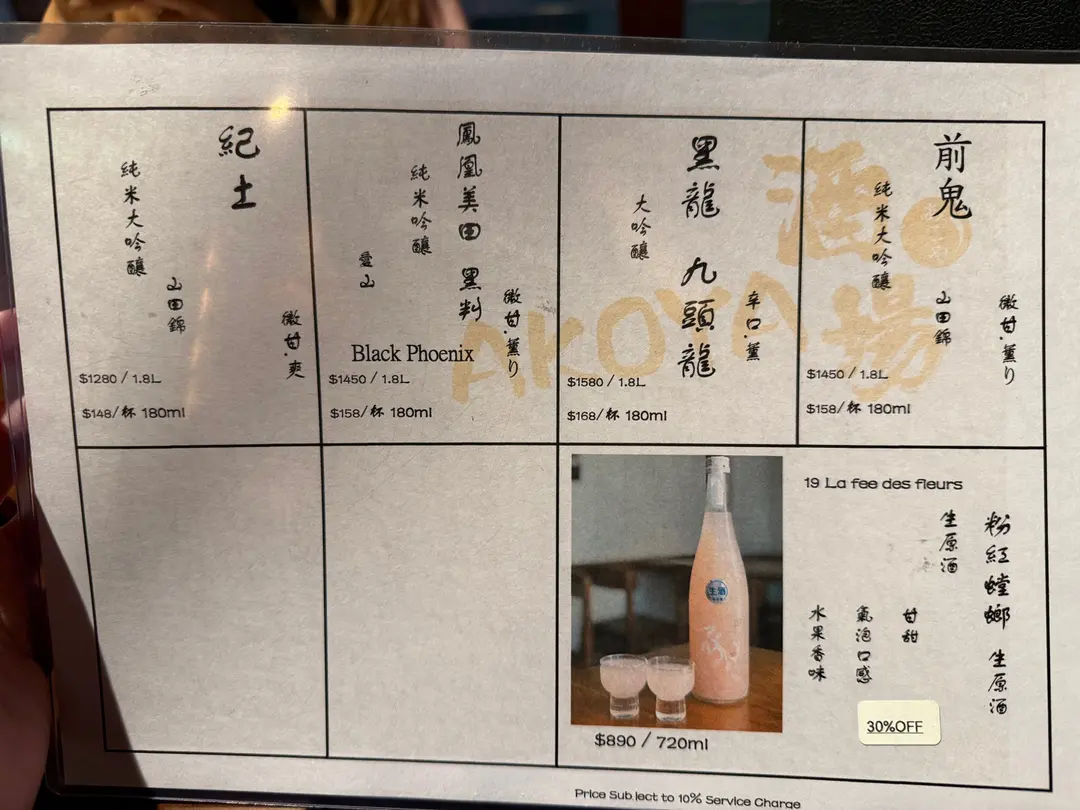 前鬼
純米大吟釀
山田錦
微甘.薫り
$1450 / 1.8L
$158/杯 180ml
黑龍 九頭龍
大吟釀
辛口.薫
$1580 / 1.8L
$168/杯 180ml
鳳凰美田 黑判
純米吟釀
愛山
微甘.薫り
Black Phoenix
$1450 / 1.8L
$158/杯 180ml
紀土
純米大吟釀
山田錦
微甘.爽
$1280 / 1.8L
$148/杯 180ml
酒場
AKOYA
19 La fee des fleurs
粉紅螳螂 生原酒
生原酒
甘甜
氣泡口感
水果香味
30%OFF
生酒
$890 / 720ml
Price Subject to 10% Service Charge